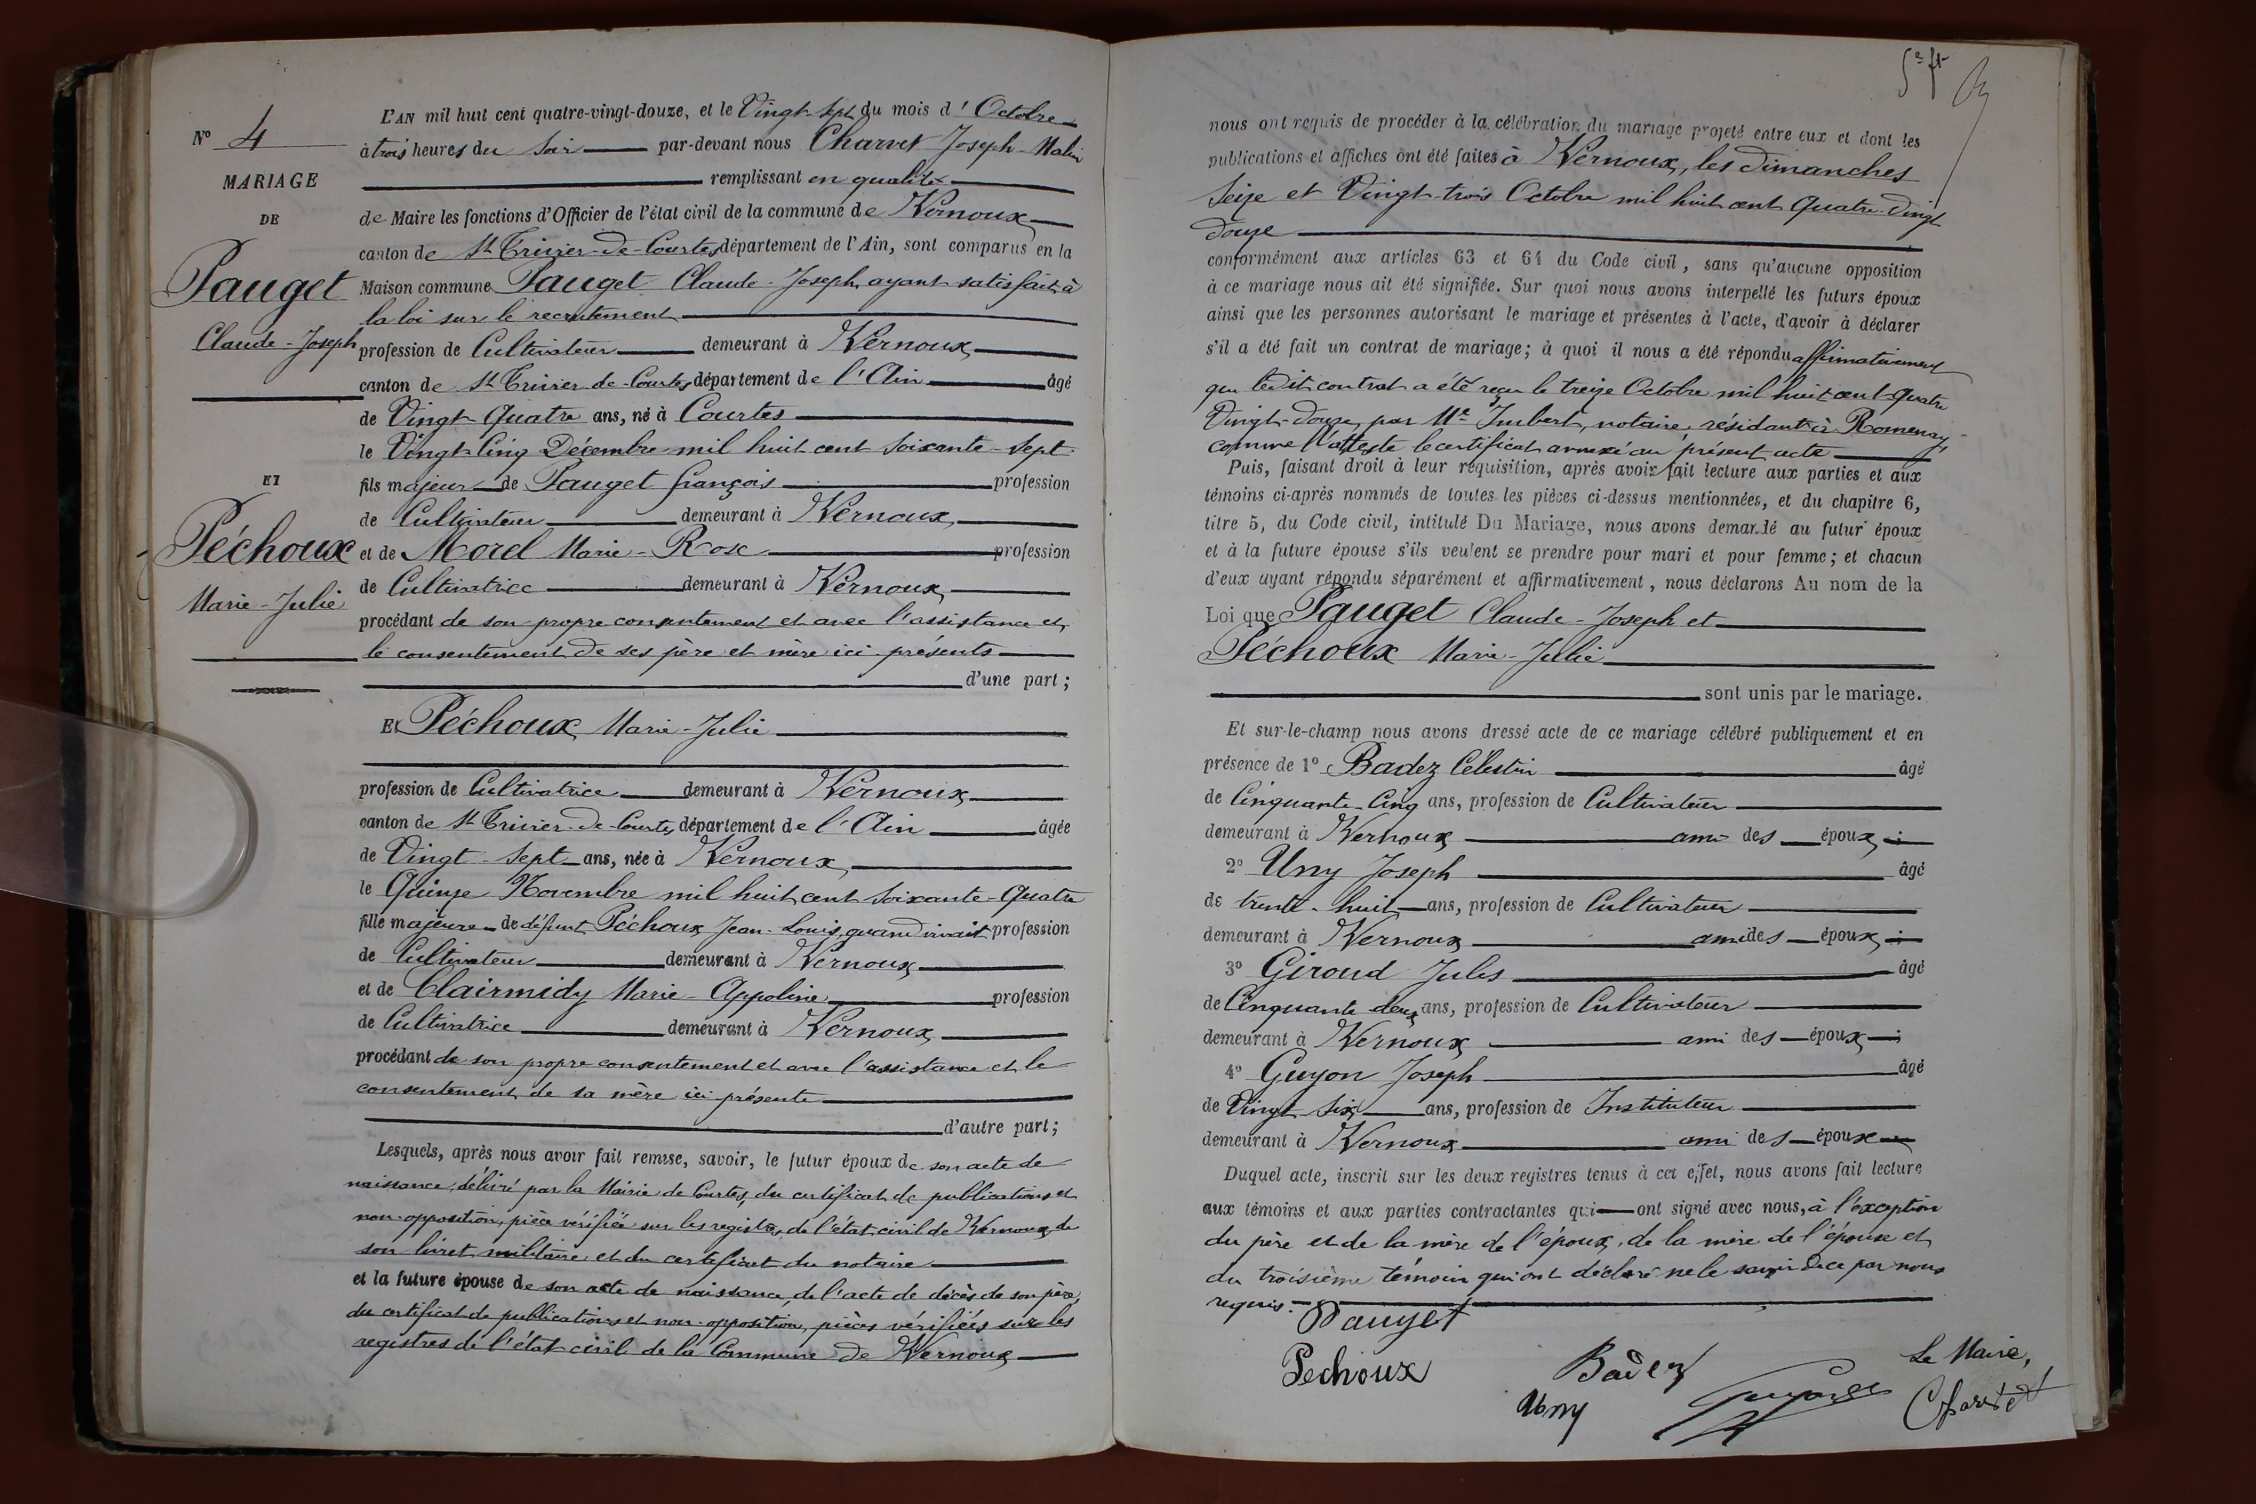 N° 4
MARIAGE
DE
Pauget
Claude-Joseph
ET
Péchoux
Marie-Julie
L'AN mil huit cent quatre-vingt-douze, et le Vingt-sept du mois d'Octobre
à trois heures du soir par-devant nous Charvet Joseph-Malin
remplissant en qualité
de Maire les fonctions d'Officier de l'état civil de la commune de Vernoux
canton de St Trivier-de-Courtes département de l'Ain, sont comparus en la
Maison commune Pauget Claude-Joseph, ayant satisfait à
la loi sur le recrutement
profession de Cultivateur demeurant à Vernoux
canton de St Trivier-de-Courtes département de l'Ain âgé
de Vingt-Quatre ans, né à Courtes
le Vingt-Cinq Décembre mil huit cent soixante-sept
fils majeur de Pauget françois profession
de Cultivateur demeurant à Vernoux
et de Morel Marie-Rose profession
de Cultivatrice demeurant à Vernoux
procédant de son propre consentement et avec l'assistance et
le consentement de ses père et mère ici présents
d'une part ;
Et Péchoux Marie-Julie
profession de Cultivatrice demeurant à Vernoux
canton de St Trivier-de-Courtes département de l'Ain âgée
de Vingt-sept ans, née à Vernoux
le Quinze Novembre mil huit cent soixante-Quatre
fille majeure de défunt Péchoux Jean-Louis, quand vivait profession
de Cultivateur demeurant à Vernoux
et de Clairmidy Marie-Appoline profession
de Cultivatrice demeurant à Vernoux
procédant de son propre consentement et avec l'assistance et le
consentement de sa mère ici présente
d'autre part ;
Lesquels, après nous avoir fait remise, savoir, le futur époux de son acte de
naissance, délivré par la Mairie de Courtes, du certificat de publications et
non-opposition, pièce vérifiée sur les registres de l'état civil de Vernoux, de
son livret militaire et du certificat du notaire
et la future épouse de son acte de naissance, de l'acte de décès de son père,
du certificat de publications et non-opposition, pièces vérifiées sur les
registres de l'état civil de la Commune de Vernoux
nous ont requis de procéder à la célébration du mariage projeté entre eux et dont les
publications et affiches ont été faites à Vernoux, les dimanches
seize et Vingt-trois Octobre mil huit cent Quatre-Vingt
douze
conformément aux articles 63 et 64 du Code civil, sans qu'aucune opposition
à ce mariage nous ait été signifiée. Sur quoi nous avons interpellé les futurs époux
ainsi que les personnes autorisant le mariage et présentes à l'acte, d'avoir à déclarer
s'il a été fait un contrat de mariage ; à quoi il nous a été répondu affirmativement
que ledit contrat a été reçu le treize Octobre mil huit cent Quatre
Vingt-Douze, par Me Imbert, notaire, résidant à Romenay,
comme l'atteste le certificat annexé au présent acte
Puis, faisant droit à leur réquisition, après avoir fait lecture aux parties et aux
témoins ci-après nommés de toutes les pièces ci-dessus mentionnées, et du chapitre 6,
titre 5, du Code civil, intitulé Du Mariage, nous avons demandé au futur époux
et à la future épouse s'ils veulent se prendre pour mari et pour femme ; et chacun
d'eux ayant répondu séparément et affirmativement, nous déclarons Au nom de la
Loi que Pauget Claude-Joseph et
Péchoux Marie-Julie
sont unis par le mariage.
Et sur-le-champ nous avons dressé acte de ce mariage célébré publiquement et en
présence de 1° Badez Célestin âgé
de Cinquante-Cinq ans, profession de Cultivateur
demeurant à Vernoux ami des époux ;
2° Uny Joseph âgé
de trente-huit ans, profession de Cultivateur
demeurant à Vernoux ami des époux ;
3° Giroud Jules âgé
de Cinquante deux ans, profession de Cultivateur
demeurant à Vernoux ami des époux ;
4° Guyon Joseph âgé
de Vingt-six ans, profession de Instituteur
demeurant à Vernoux ami des époux
Duquel acte, inscrit sur les deux registres tenus à cet effet, nous avons fait lecture
aux témoins et aux parties contractantes qui ont signé avec nous, à l'exception
du père et de la mère de l'époux, de la mère de l'épouse et
du troisième témoin qui ont déclaré ne le savoir de ce par nous
requis.
Pauget
Pechoux
Badez
Uny
Le Maire,
Charvet